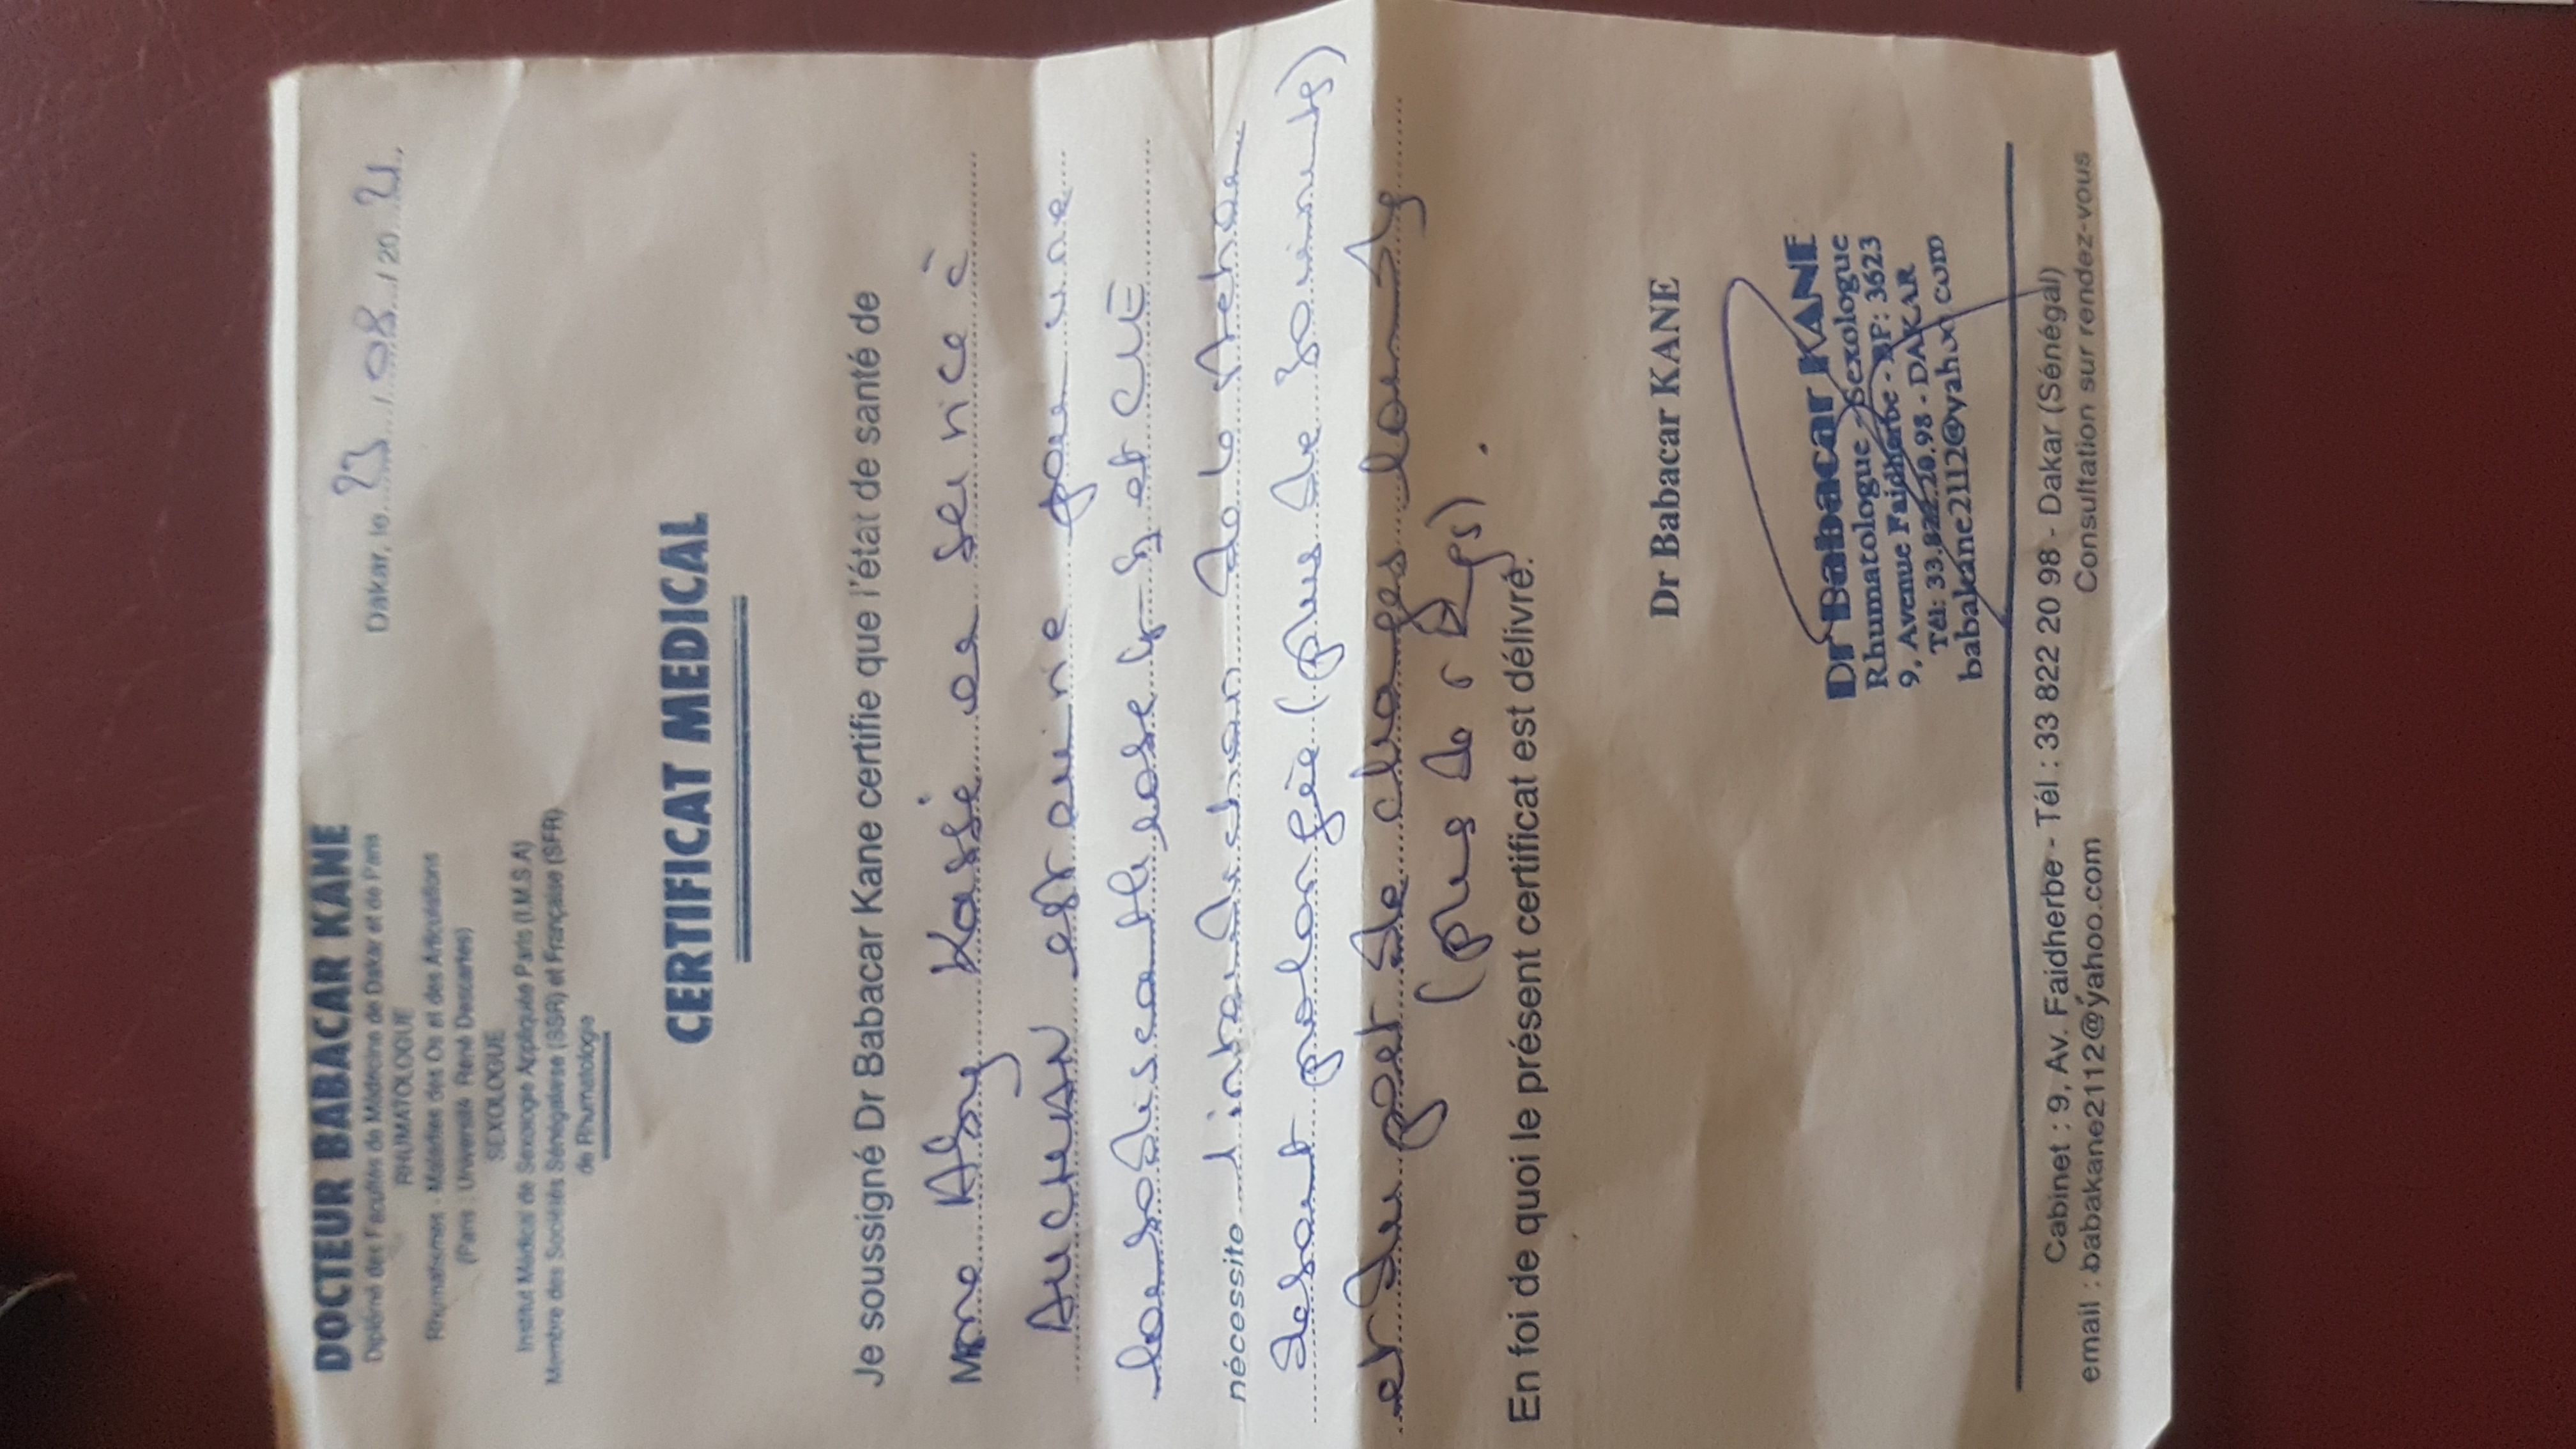 DOCTEUR BABACAR KANE
Diplômé des Facultés de Médecine de Dakar et de Paris
RHUMATOLOGUE
Rhumatismes - Maladies des Os et des Articulations
(Paris : Université René Descartes)
SEXOLOGUE
Institut Médical de Sexologie Appliquée Paris (I.M.S.A)
Membre des Sociétés Sénégalaise (SSR) et Française (SFR)
de Rhumatologie
Dakar, le 23 / 08 / 20 21
CERTIFICAT MEDICAL
Je soussigné Dr Babacar Kane certifie que l'état de santé de
Mme Kassé en service à
AUCHAN est suivie pour une
et CLE
nécessite l'interdiction de la station
debout prolongée (plus de 30 minuts)
et du port de charges lourds
(plus de 5 kgs).
En foi de quoi le présent certificat est délivré.
Dr Babacar KANE
Dr Babacar KANE
Rhumatologue - Sexologue
9, Avenue Faidherbe - BP: 3623
Tél: 33.822.20.98 - DAKAR
babakane2112@yahoo.com
Cabinet : 9, Av. Faidherbe - Tél : 33 822 20 98 - Dakar (Sénégal)
email : babakane2112@yahoo.com Consultation sur rendez-vous